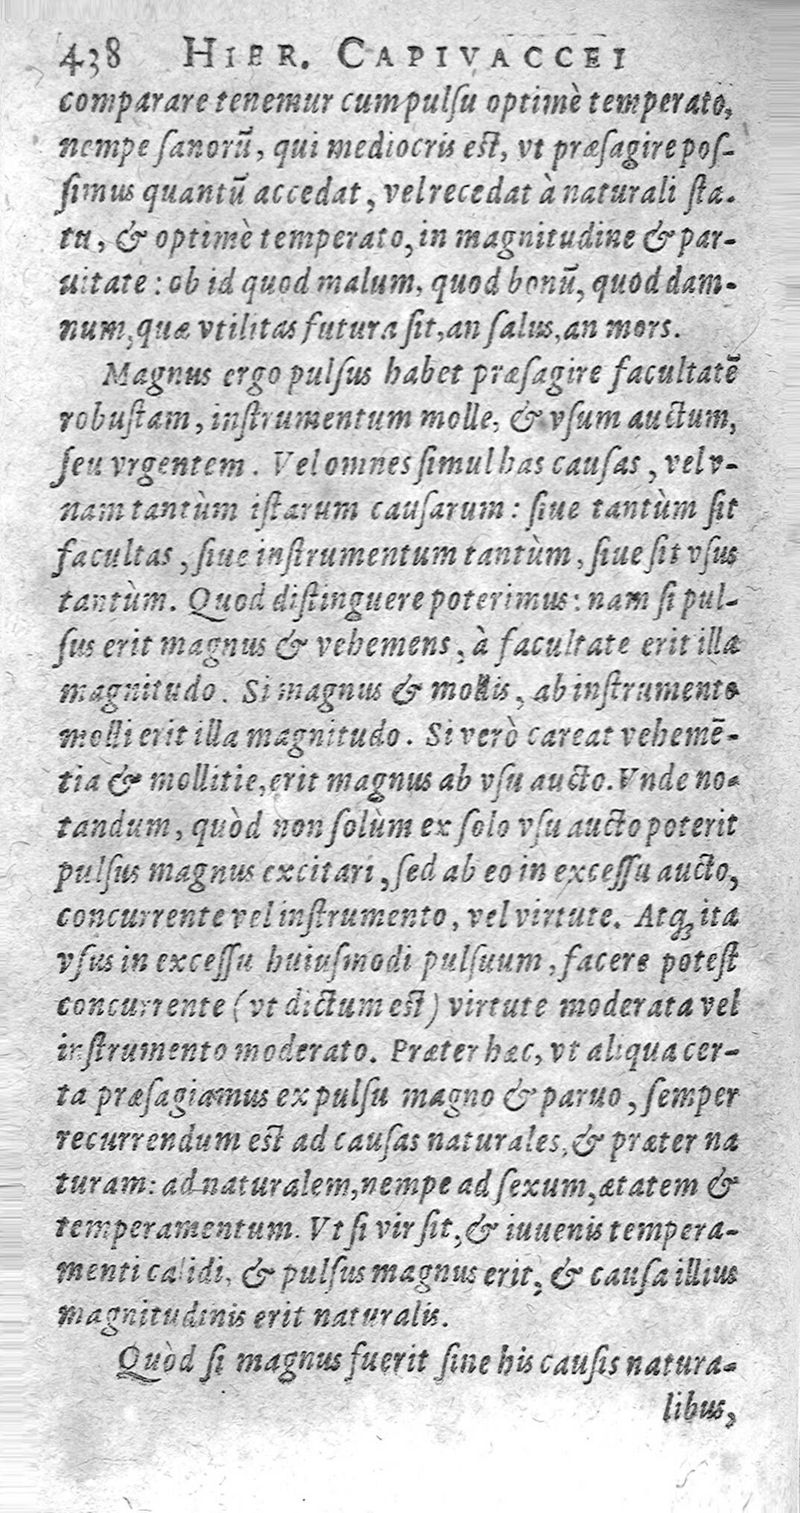 438 HIER. CAPIVACCEI
comparare tenemur cum pulſu optimè temperato,
nempe ſanorũ, qui mediocris eſt, vt præſagire poſ-
ſimus quantũ accedat, vel recedat à naturali ſta-
tu, & optimè temperato, in magnitudine & par-
uitate : ob id quod malum, quod bonũ, quod dam-
num, quæ vtilitas futura ſit, an ſalus, an mors.
Magnus ergo pulſus habet præſagire facultatẽ
robuſtam, inſtrumentum molle, & vſum auctum,
ſeu vrgentem. Vel omnes ſimul has cauſas, vel v-
nam tantùm iſtarum cauſarum : ſiue tantùm ſit
facultas, ſiue inſtrumentum tantùm, ſiue ſit vſus
tantùm. Quod diſtinguere poterimus : nam ſi pul-
ſus erit magnus & vehemens, à facultate erit illa
magnitudo. Si magnus & mollis, ab inſtrumento
molli erit illa magnitudo. Si verò careat vehemẽ-
tia & mollitie, erit magnus ab vſu aucto. Vnde no-
tandum, quòd non ſolùm ex ſolo vſu aucto poterit
pulſus magnus excitari, ſed ab eo in exceſſu aucto,
concurrente vel inſtrumento, vel virtute. Atq; ita
vſus in exceſſu huiuſmodi pulſuum, facere poteſt
concurrente (vt dictum eſt) virtute moderata vel
inſtrumento moderato. Præter hæc, vt aliqua cer-
ta præſagiamus ex pulſu magno & paruo, ſemper
recurrendum eſt ad cauſas naturales, & præter na
turam : ad naturalem, nempe ad ſexum, ætatem &
temperamentum. Vt ſi vir ſit, & iuuenis tempera-
menti calidi, & pulſus magnus erit, & cauſa illius
magnitudinis erit naturalis.
Quòd ſi magnus fuerit ſine his cauſis natura-
libus,